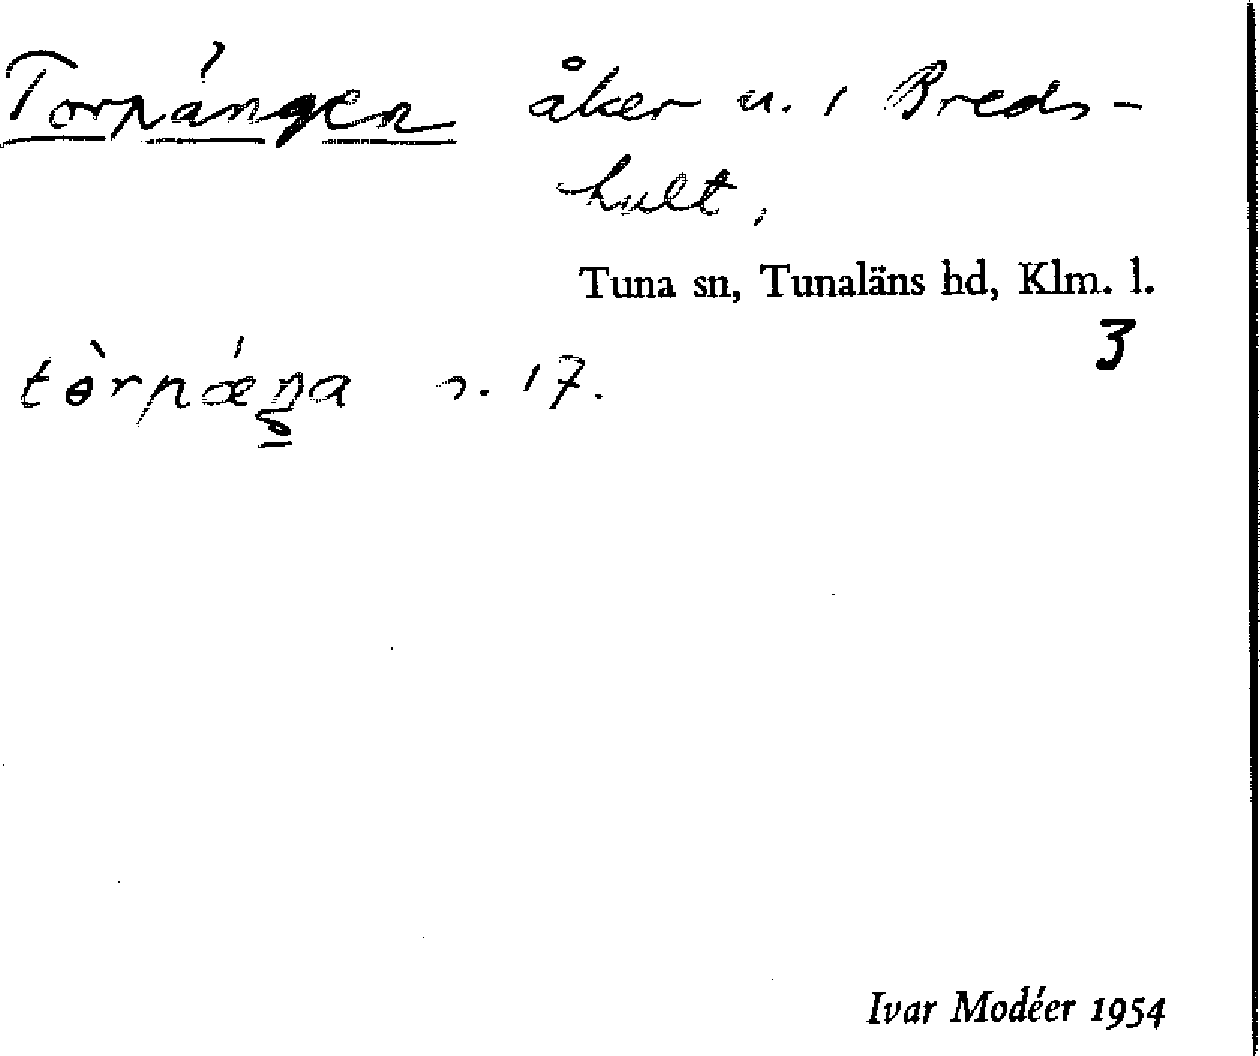 Torpängen åker u. i Breds-
hult,
Tuna sn, Tunaläns hd, Klm. l.
3
tɵ̀rpǽŋa s. 17.
Ivar Modéer 1954